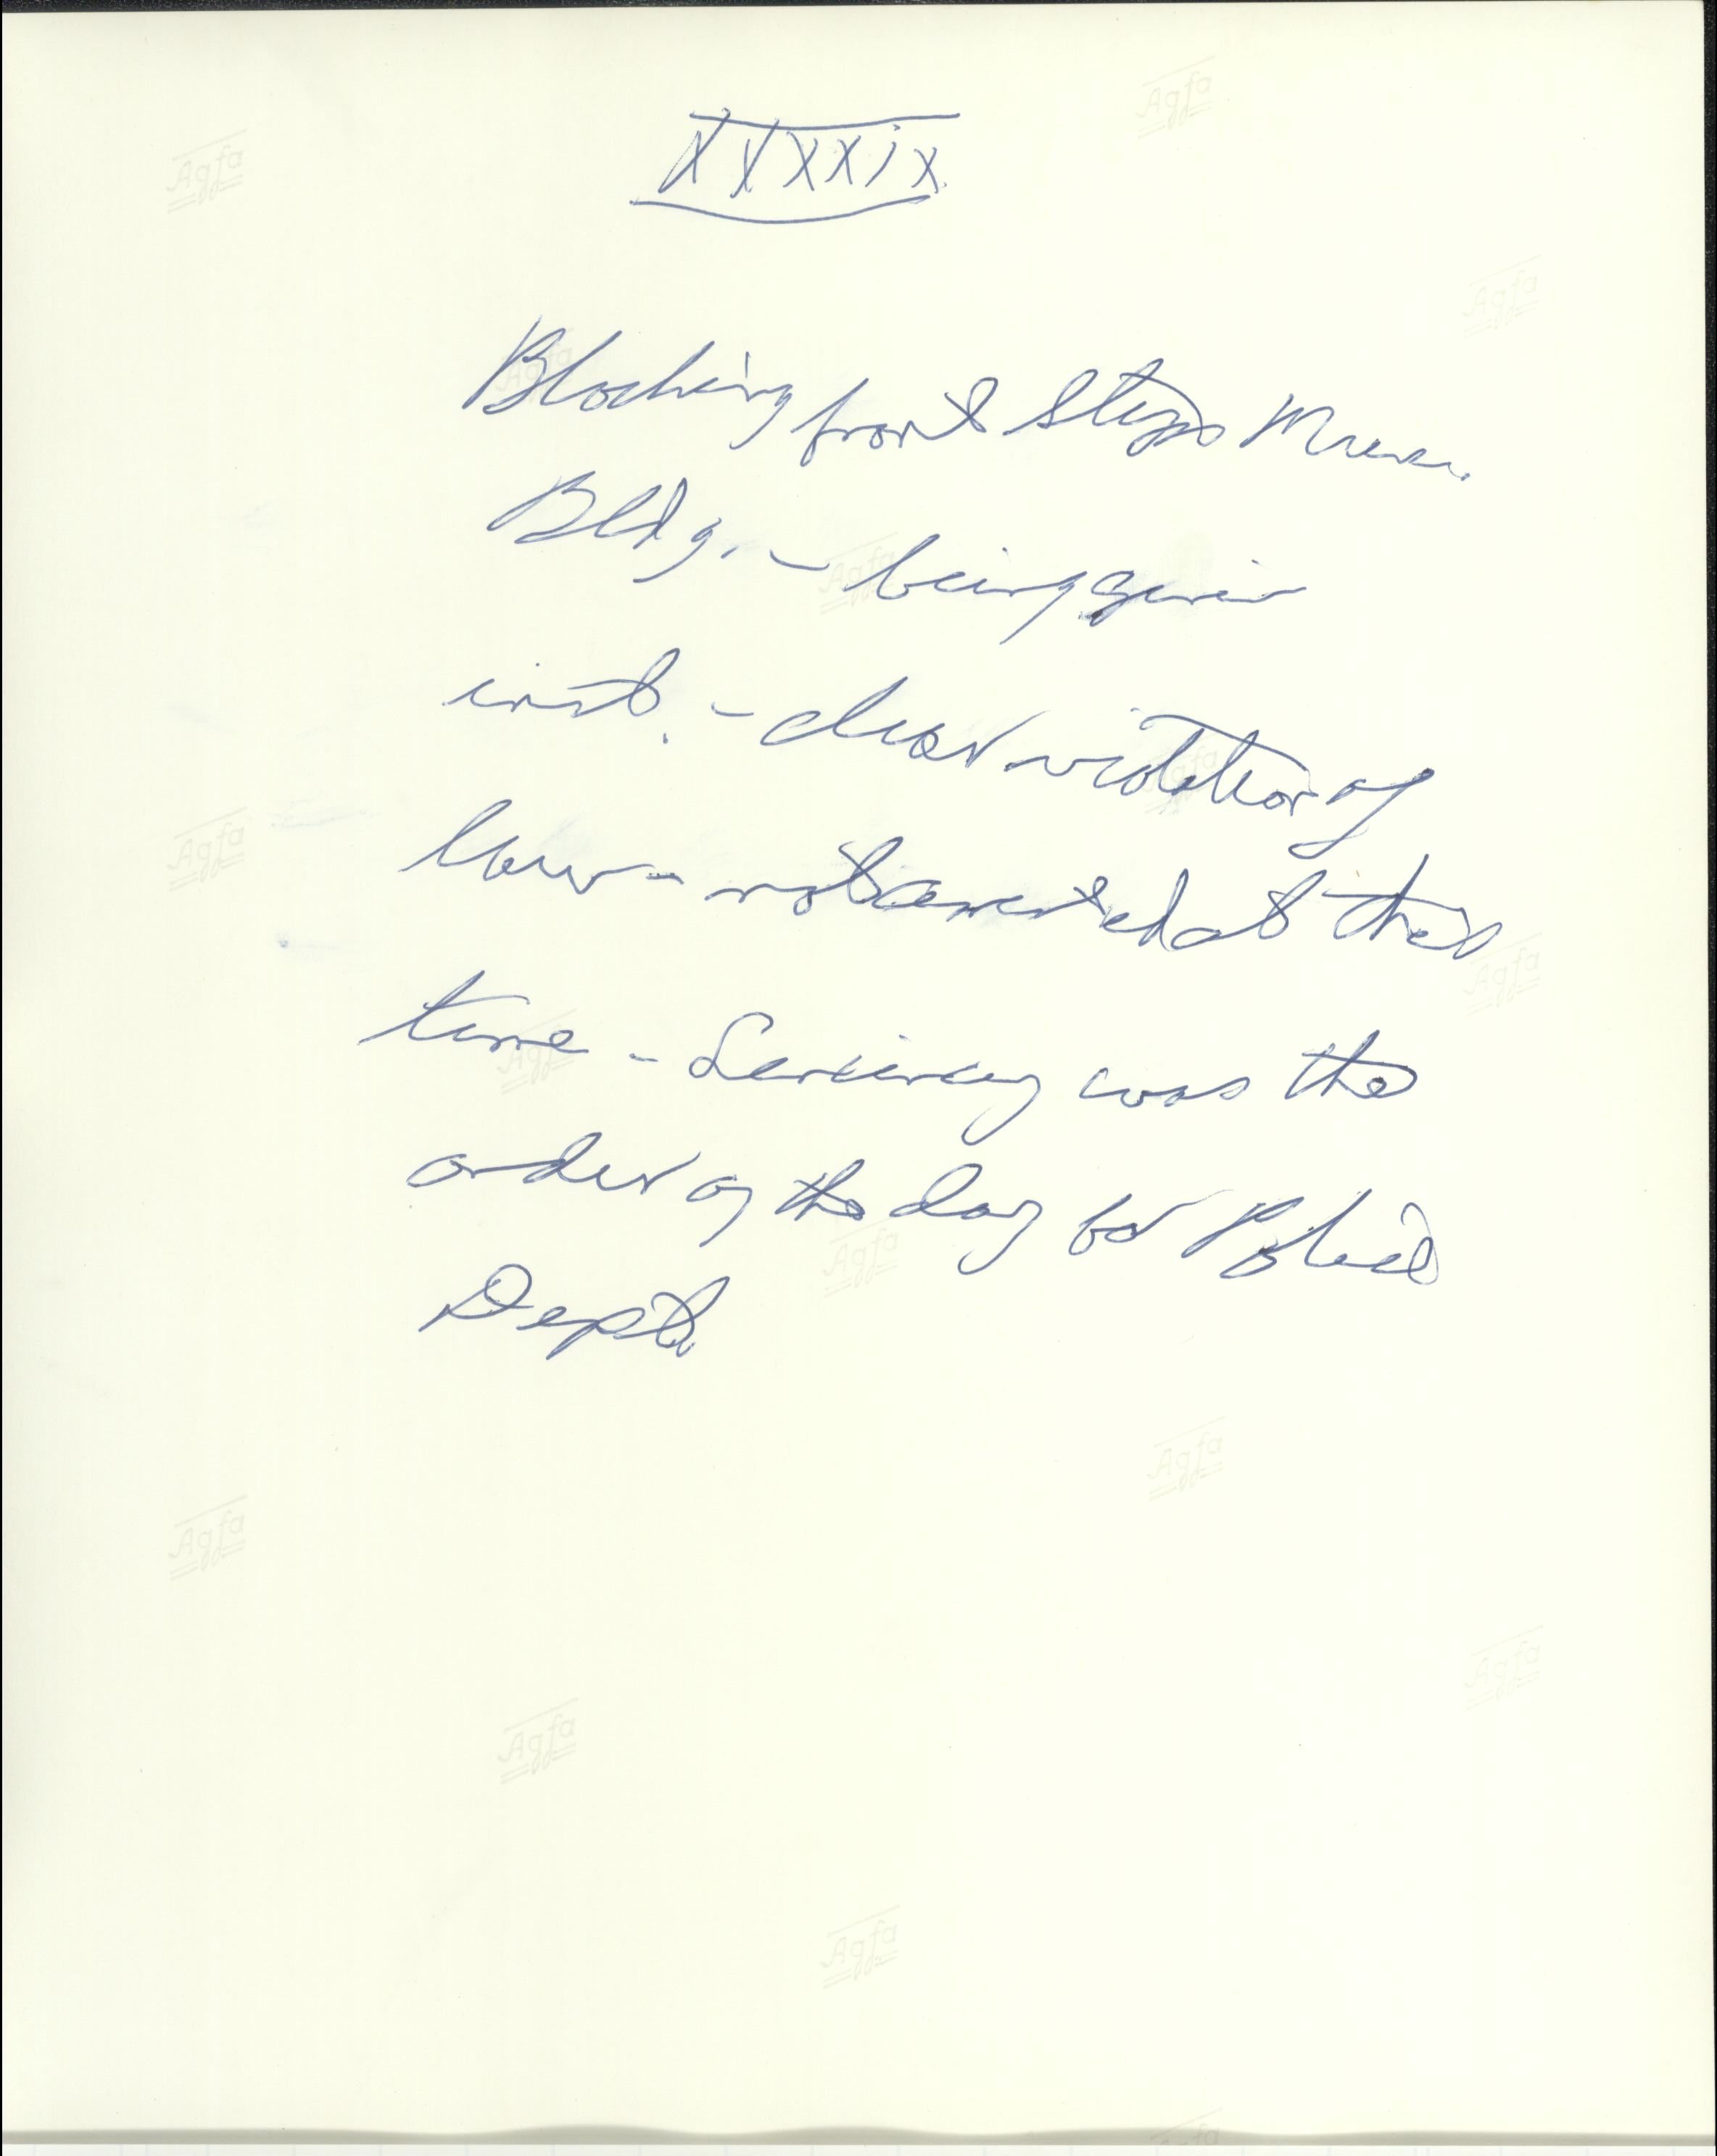 XXXXIX
Blocking front steps Munc.
Bldg. - being given
inst. - clear violation of
law - not arrested at this
time - Leniency was the
order of the day for Police
Dept.
Agfa